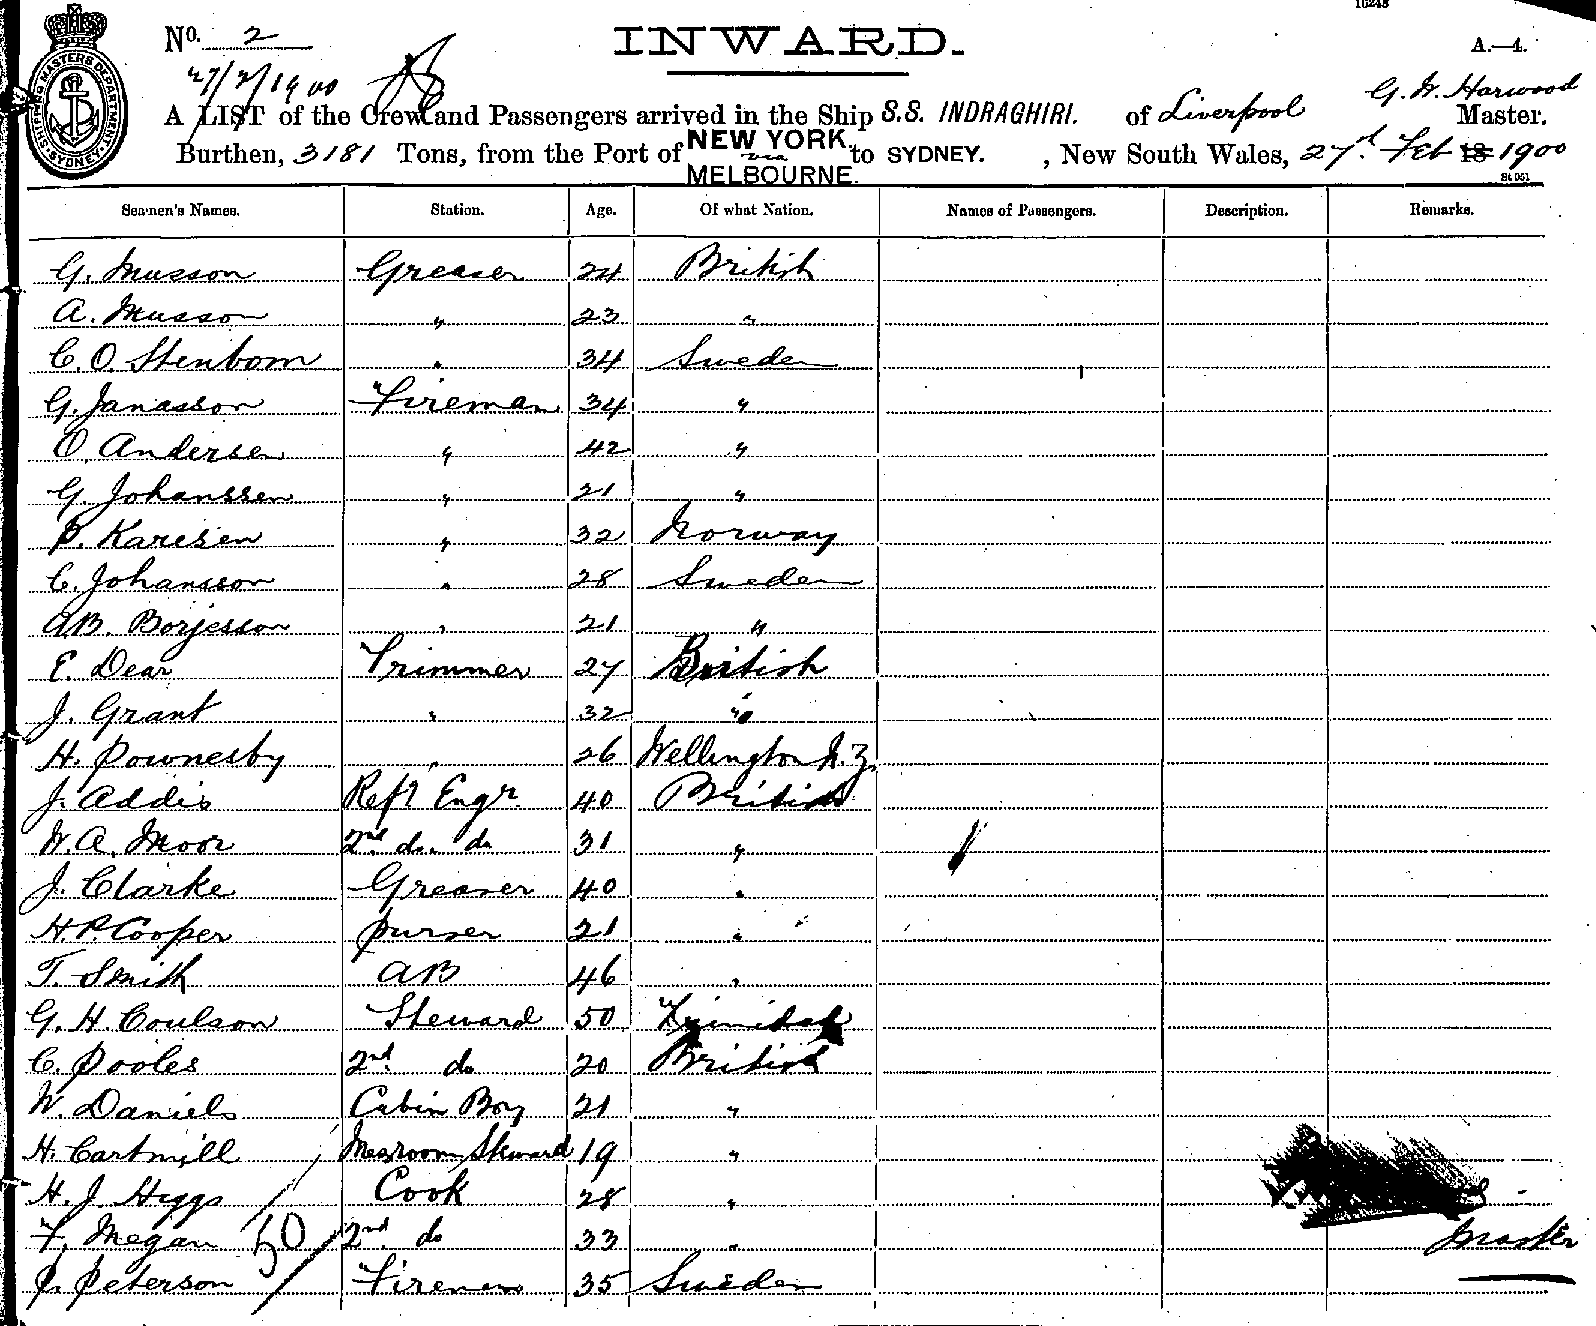 16248
No. 2 INWARD. A.—4.
27/2/1900
G. W. Harwood
A LIST of the Crew and Passengers arrived in the Ship S.S. INDRAGHIRI. of Liverpool Master.
Burthen, 3181 Tons, from the Port of NEW YORK via MELBOURNE. to SYDNEY. , New South Wales, 27th Feb 18 1900
St 051
SHIPPING MASTERS DEPARTMENT SYDNEY
Seamen's Names. Station. Age. Of what Nation. Names of Passengers. Description. Remarks.
G. Musson Greaser 24 British
A. Musson " 23 "
C. O. Stenbom " 34 Sweden
G. Janasson Fireman 34 "
O. Andersen " 42 "
G. Johanssen " 21 "
P. Karisen " 32 Norway
C. Johansson " 28 Sweden
A B. Borjesson " 21 "
E. Dear Trimmer 27 British
J. Grant " 32 "
H. Pownesby " 26 Wellington N.Z.
J. Addis Refr Engr 40 British
W. A. Moor 2nd do. do 31 "
J. Clarke Greaser 40 "
H. P. Cooper purser 21 "
T. Smith AB 46 "
G. H. Coulson Steward 50 Trinidad
C. Pooles 2nd do 20 British
W. Daniels Cabin Boy 21 "
H. Cartmill Messroom Steward 19 "
H. J. Higgs Cook 28 "
F. Megan 50 2nd do 33 " Master
P. Peterson Fireman 35 Sweden